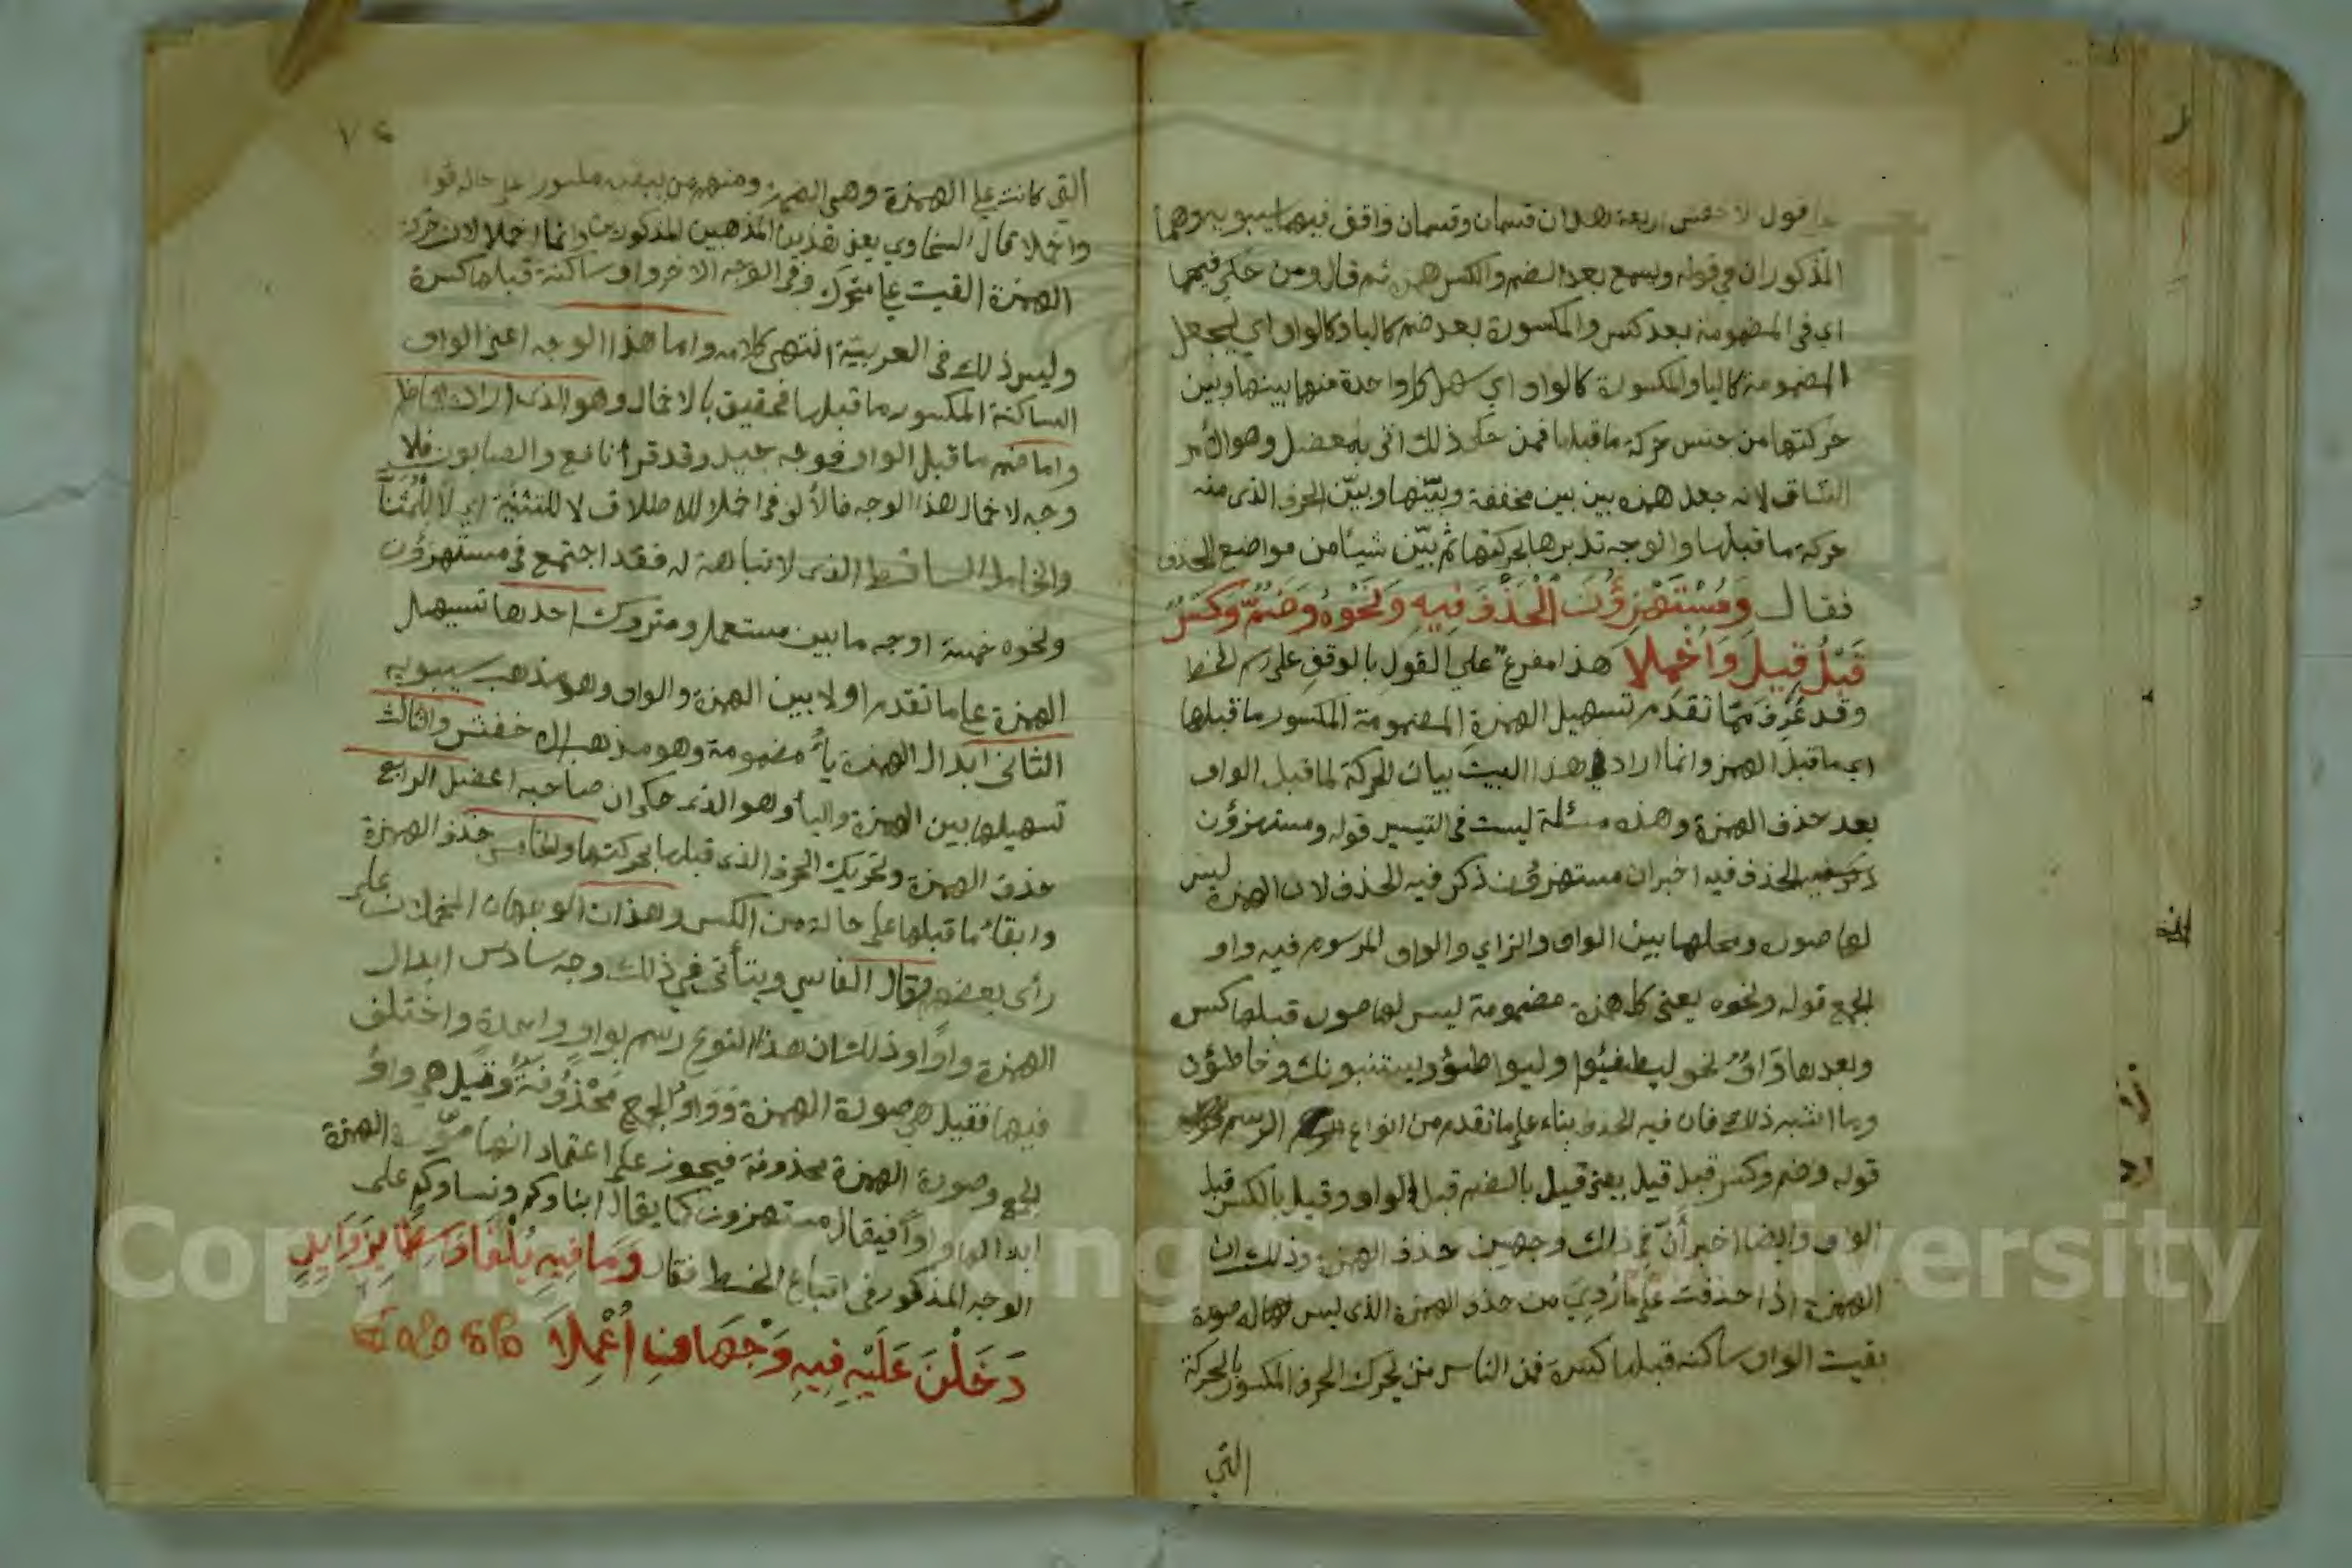 قول الاخفش اربعة هذان قسمان وقسمان وافق فيهما سيبويه وهما
المذكوران في قوله ويسمع بعد الضم والكسر همزه ثم قال ومن حكي فيهما
اي في المضمومة بعد كسر والمكسورة بعد ضم كاليا وكالواو اي يجعل
المضمومة كاليا والمكسورة كالواو اي سهل كل واحدة منهما بينها وبين
حركتها من جنس حركة ما قبلها فمن حكى ذلك اتى بمعضل وهو الامر
الشاق لانه جعل همزه بين بين مخففة وبينها وبين الحرف الذى منه
حركة ما قبلها والوجه تدبرها بحركتها ثم بين شيئا من مواضع الحذف
فقال وَمُسْتَهْزِؤُنَ الْحَذْفَ فِيهِ وَنَحْوُهُ وَضَمٌّ وَكَسْرٌ
قَبْلُ قِيلَ وَاُخْمِلا هذا مفرع على القول بالوقف على رسم الخط
وقد عُرِفَ مما تقدم تسهيل الهمزة المضمومة المكسور ما قبلها
اي ما قبل الهمز وانما اراد بهذا البيت بيان الحركة لما قبل الواو
بعد حذف الهمزة وهذه مسئلة ليست في التيسير قوله ومستهزؤن
الحذف فيه اخبر ان مستهزؤن ذكر فيه الحذف لان الهمزة ليس
لها صوره ومحلها بين الواو والزاي والواو المرسوم فيه واو
الجمع قوله ونحوه يعنى كل همزة مضمومة ليس لها صورة قبلها كسر
وبعدها وَاوٌ نحو ليطفئوا وليواطئوا ويستنبونك وخاطئون
وما اشبه ذلك فان فيه الحذف بناء على ما تقدم من انواع الرسم
قوله وضم وكسر قبل قيل يعنى قيل بالضم قبل الواو وقيل بالكسر قبل
الواو وايضا اخبر أنّ في ذلك وجهين حذف الهمزة وذلك ان
الهمزة اذا حذفت على ما رُوِيَ من حذف الهمزة الذى ليس لها صورة
بقيت الواو ساكنه قبلها كسرة فمن الناس من يحرك الحرف المكسور بالحركة
التي
٧٤
التي كانت على الهمزة وهى الضمة ومنهم من يبقيه مكسورا على حاله
واخملا قال السخاوي يعنى هذين المذهبين المذكورين وانما اخملا لان حركة
الهمزة القيت على متحرك وفى الوجه الاخر واو ساكنة قبلها كسرة
وليس ذلك فى العربية انتهى كلامه واما هذا الوجه اعنى الواو
الساكنة المكسور ما قبلها فحقيق بالاخمال وهو الذى اراد الناظم
واما ضم ما قبل الواو فوجه جيد وقد قرأ نافع والصابون فلا
وجه لاخمال هذا الوجه فالألف فى اخملا للاطلاق لا للتثنية
والخامل الساقط الذى لا نباهة له فقد اجتمع فى مستهزؤن
ونحوه خمسة اوجه ما بين مستعمل ومتروك احدها تسهيل
الهمزة على ما تقدم اولا بين الهمزة والواو وهو مذهب سيبويه
الثانى ابدال الهمزة ياءً مضمومة وهو مذهب الاخفش والثالث
تسهيلها بين الهمزة والياء وهو الذى حكى ان صاحبه اعضل الرابع
حذف الهمزة وتحريك الحرف الذى قبلها بحركتها والخامس حذف الهمزة
وابقاء ما قبلها على حاله من الكسر وهذان الوجهان المخملان على
رأى بعضهم وقال الفاسي ويتأتى في ذلك وجه سادس ابدال
الهمزة واوًا وذلك ان هذا النوع رسم بواو واحدة واختلف
فيها فقيل هي صورة الهمزة وَوَاوُ الجمع مَحْذُوفَةٌ وقيل هي واوُ
الجمع وصورة الهمزة محذوفة فيجوز على اعتقاد انها صورة الهمزة
ابدالها واوًا فيقال مستهزون كما يقال ابناوكم ونساوكم على
الوجه المذكور فى اتباع الخط فقال وَمَا فِيهِ يُلْفَا وَاسِطًا بِزَوَايِدٍ
دَخَلْنَ عَلَيْهِ فِيهِ وَجْهَانِ اُعْمِلَا
Copyright © King Saud University